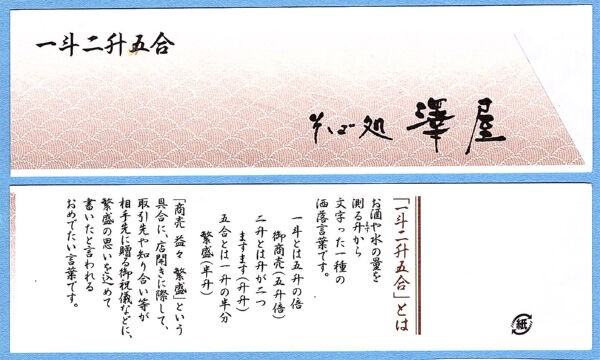 一斗二升五合
そば処 澤屋
「一斗二升五合」とは
お酒や水の量を
測る升から
文字った一種の
洒落言葉です。
一斗とは五升の倍
御商売（五升倍）
二升とは升が二つ
ますます（升升）
五合とは一升の半分
繁盛（半升）
「商売 益々 繁盛」という
具合に、店開きに際して、
取引先や知り合い等が
相手先に贈る御祝儀などに、
繁盛の思いを込めて
書いたと言われる
おめでたい言葉です。
紙